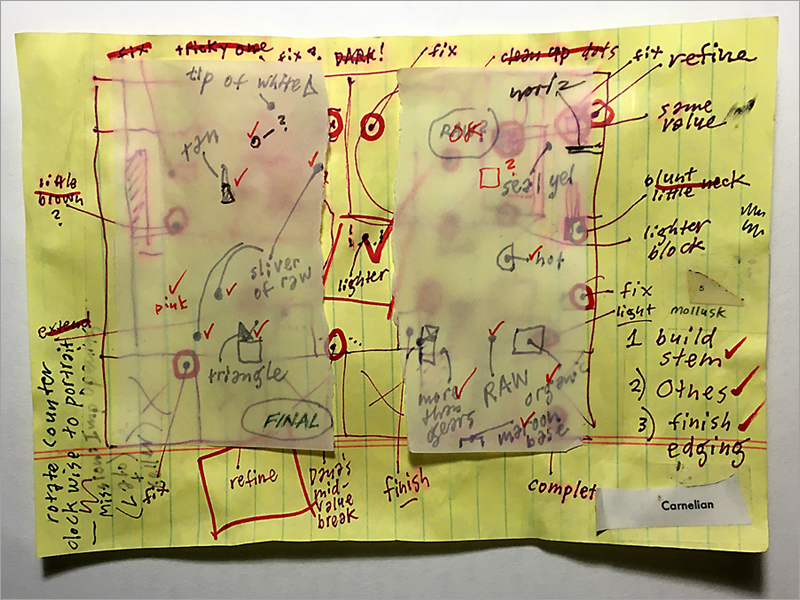 fix
tricky one
fix?
DARK!
fix
clean up dots
fix
refine
tip of white
work?
same
value
?
OK!
tan
?
seal yel
little
brown
?
blunt
little neck
lighter
block
sliver
of raw
lighter
hot
pink
fix
light
s
mollusk
extend
1 build
stem
2) Othes
3) finish
edging
triangle
more
than
gears
RAW
organic
maroon
base
FINAL
rotate counter
clockwise to portrait
refine
Dana's
mid-
value
break
finish
complet
Carnelian